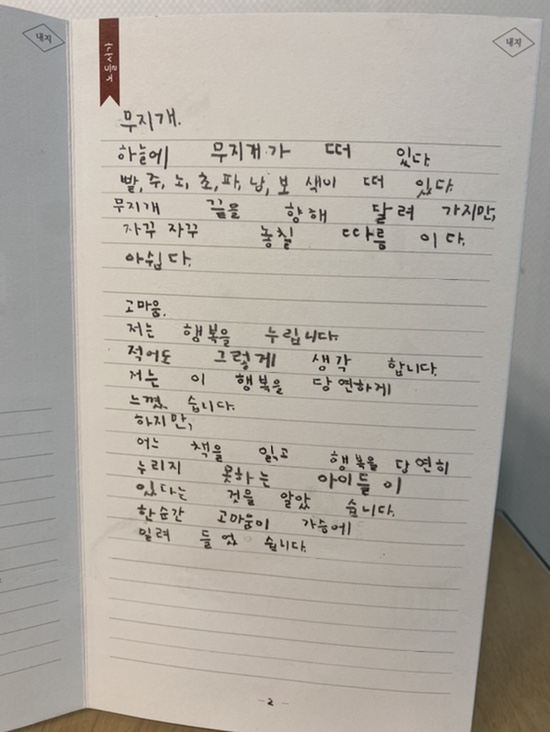 내지
내지
노들서가
무지개.
하늘에 무지게가 떠 있다
빨, 주, 노, 초, 파, 남, 보 색이 떠 있다.
무지개 끝을 향해 달려 가지만,
자꾸 자꾸 놓칠 따름 이다.
아쉽다.
고마움.
저는 행복을 누립니다.
적어도 그렇게 생각 합니다.
저는 이 행복을 당연하게
느꼈 습니다.
하지만,
어느 책을 읽고 행복을 당연히
누리지 못하는 아이들이
있다는 것을 알았 습니다.
한순간 고마움이 가슴에
밀려 들었 습니다.
- 2 -